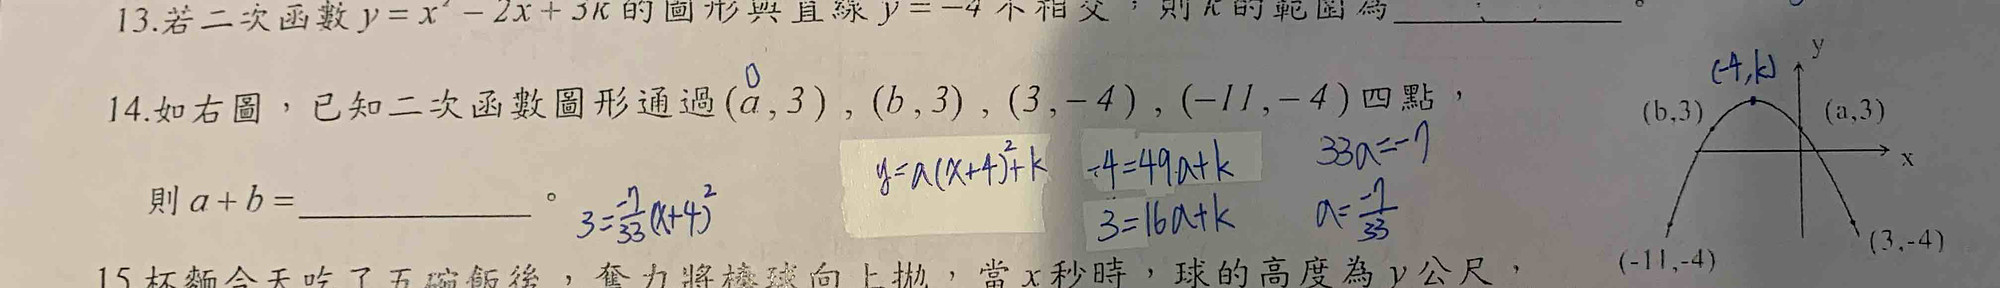 13.若二次函數 y = x² − 2x + 3k 的圖形與直線 y = −4 不相交，則 k 的範圍為________。
0
14.如右圖，已知二次函數圖形通過(a,3),(b,3),(3,−4),(−11,−4)四點，
則 a + b = ________。
y=a(x+4)²+k
-4=49a+k
33a=-7
3=-7/33(x+4)²
3=16a+k
a=-7/33
(-4,k)
y
(b,3)
(a,3)
x
(-11,-4)
(3,-4)
15.杯麵今天吃了五碗飯後，奮力將棒球向上拋，當 x 秒時，球的高度為 y 公尺，